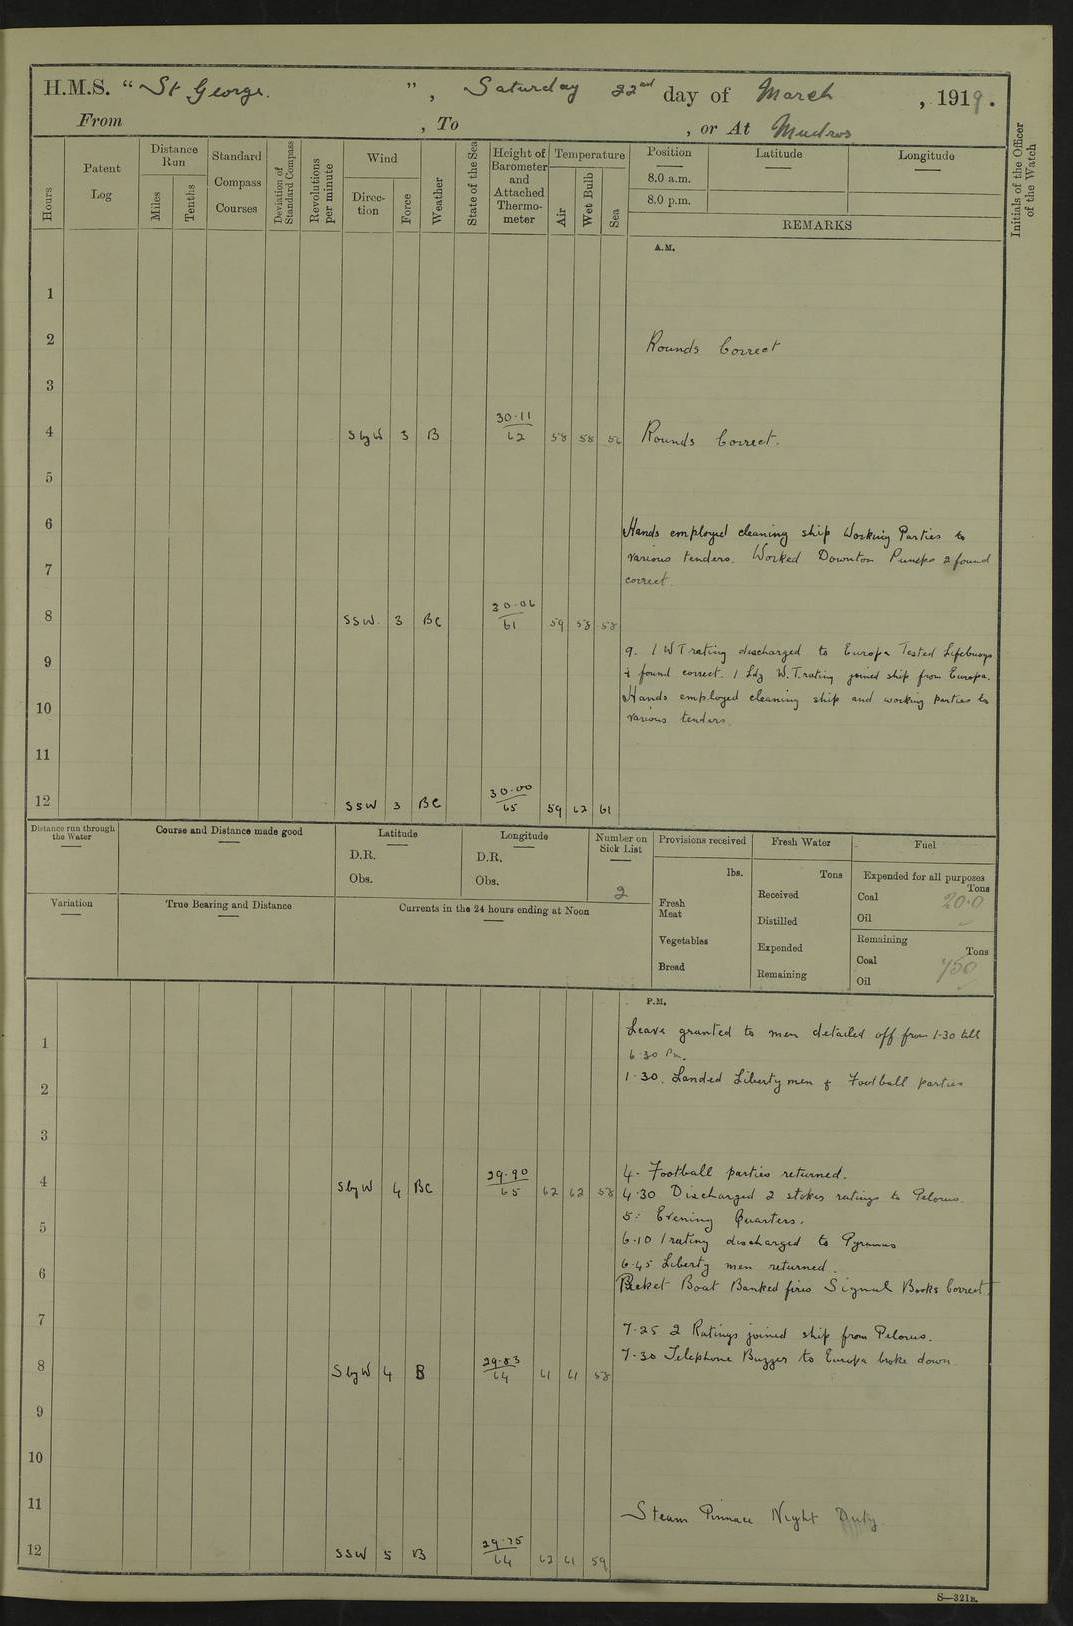 H.M.S. “St George.”, Saturday 22nd day of March, 1919.
From , To , or At Mudros
Hours
Patent Log
Distance Run
Miles
Tenths
Standard Compass Courses
Deviation of Standard Compass
Revolutions per minute
Wind
Direction
Force
Weather
State of the Sea
Height of Barometer and Attached Thermometer
Temperature
Air
Wet Bulb
Sea
Position
8.0 a.m.
8.0 p.m.
Latitude
Longitude
REMARKS
Initials of the Officer of the Watch
A.M.
1
2 Rounds Correct
3
4 S by W 3 B 30.11 62 58 58 56 Rounds Correct.
5
6 Hands employed cleaning ship Working Parties to
various tenders. Worked Downton Pumps & found
7 correct.
8 SSW. 3 BC 30.06 61 59 58 58
9. 1 W T rating discharged to Europa Tested Lifebuoys
9 & found correct. 1 Ldg W.T. rating joined ship from Europa.
Hands employed cleaning ship and working parties to
10 various tenders.
11
12 SSW 3 BC 30.00 65 59 62 61
Distance run through the Water
Course and Distance made good
Latitude
D.R.
Obs.
Longitude
D.R.
Obs.
Number on Sick List
2
Provisions received
lbs.
Fresh Meat
Vegetables
Bread
Fresh Water
Tons
Received
Distilled
Expended
Remaining
Fuel
Expended for all purposes
Tons
Coal 20.0
Oil
Remaining
Tons
Coal 750
Oil
Variation
True Bearing and Distance
Currents in the 24 hours ending at Noon
P.M.
Leave granted to men detailed off from 1-30 till
1 6.30 Pm.
1.30. Landed Liberty men & Football parties
2
3
4. Football parties returned.
4 S by W 4 BC 29.90 65 62 62 58 4.30 Discharged 2 stoker ratings to Pelorus.
5: Evening Quarters.
5 6.10 1 rating discharged to Pyramus
6.45 Liberty men returned.
6 Picket Boat Banked fires Signal Books Correct.
7 7.25 2 Ratings joined ship from Pelorus.
7.30 Telephone Buzzer to Europa broke down
8 S by W 4 B 29.83 64 61 61 58
9
10
11 Steam Pinnace Night Duty
12 SSW 5 B 29.75 64 62 61 59
S—321B.